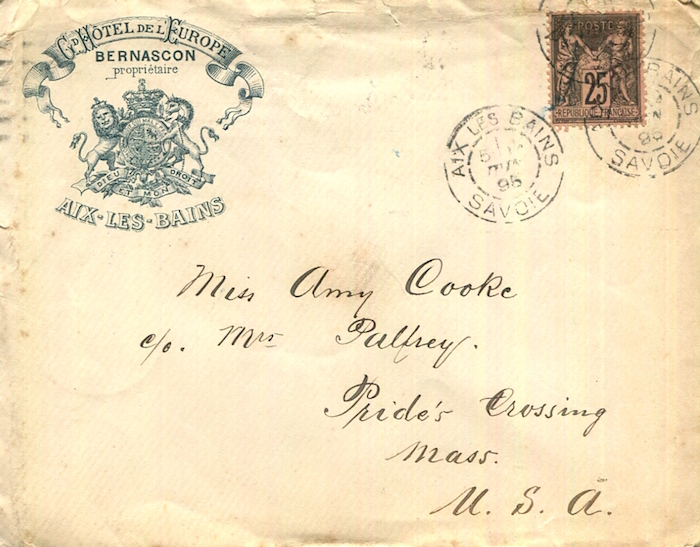 Gd HÔTEL DE L'EUROPE
BERNASCON
propriétaire
DIEU ET MON DROIT
AIX-LES-BAINS
POSTE
25
REPUBLIQUE FRANÇAISE
AIX LES BAINS
95
SAVOIE
BAINS
SAVOIE
Miss Amy Cooke
c/o. Mrs Palfrey.
Pride's Crossing
Mass.
U. S. A.